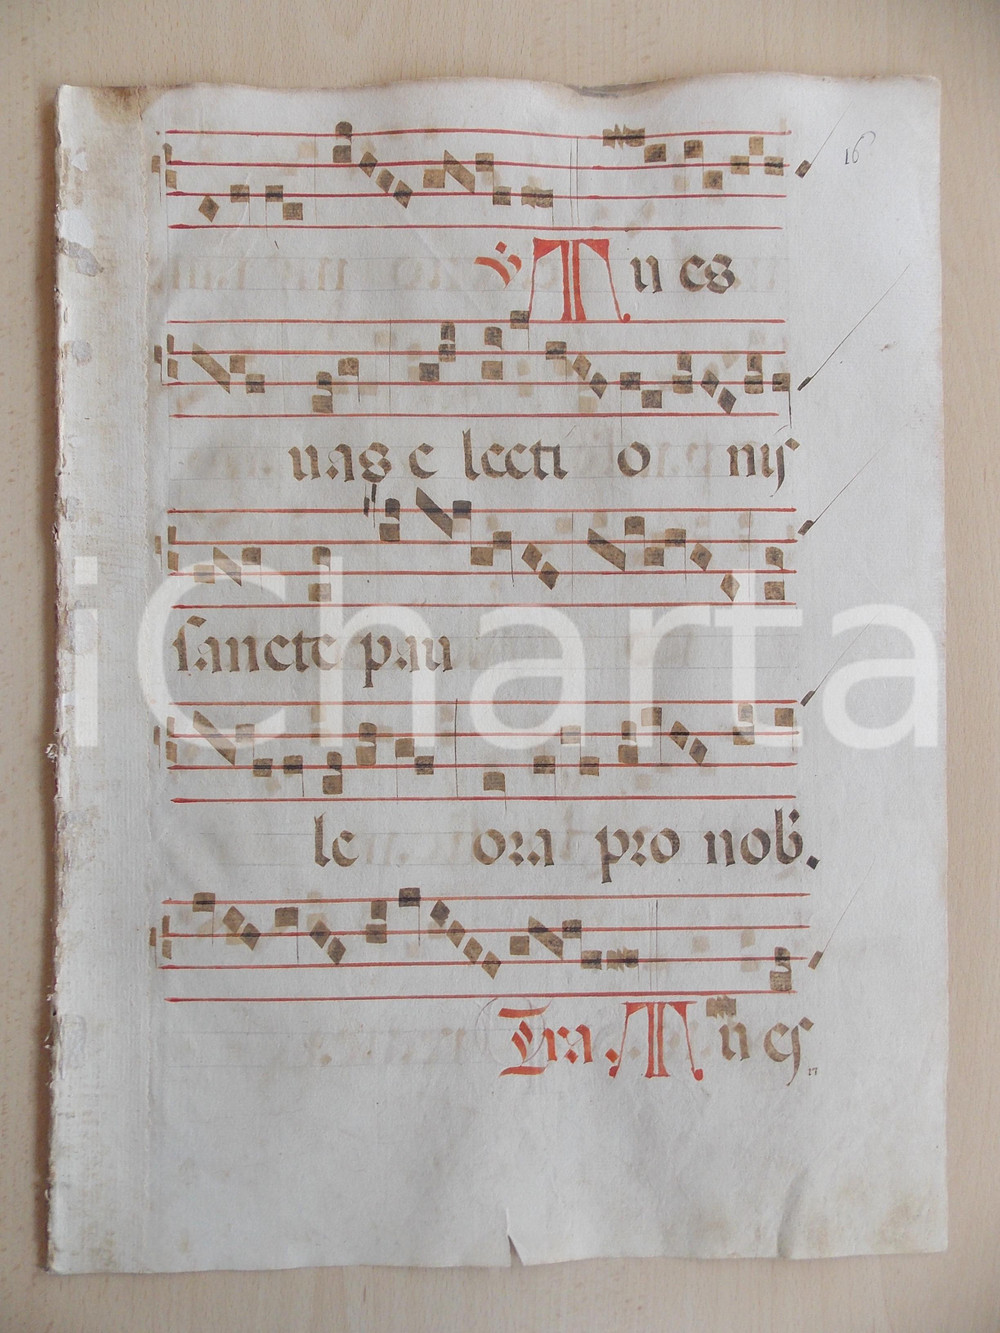 16
℣ Tu es
uas e lecti o nis
sancte pau
le ora pro nob.
Tra. Tu es
iCharta